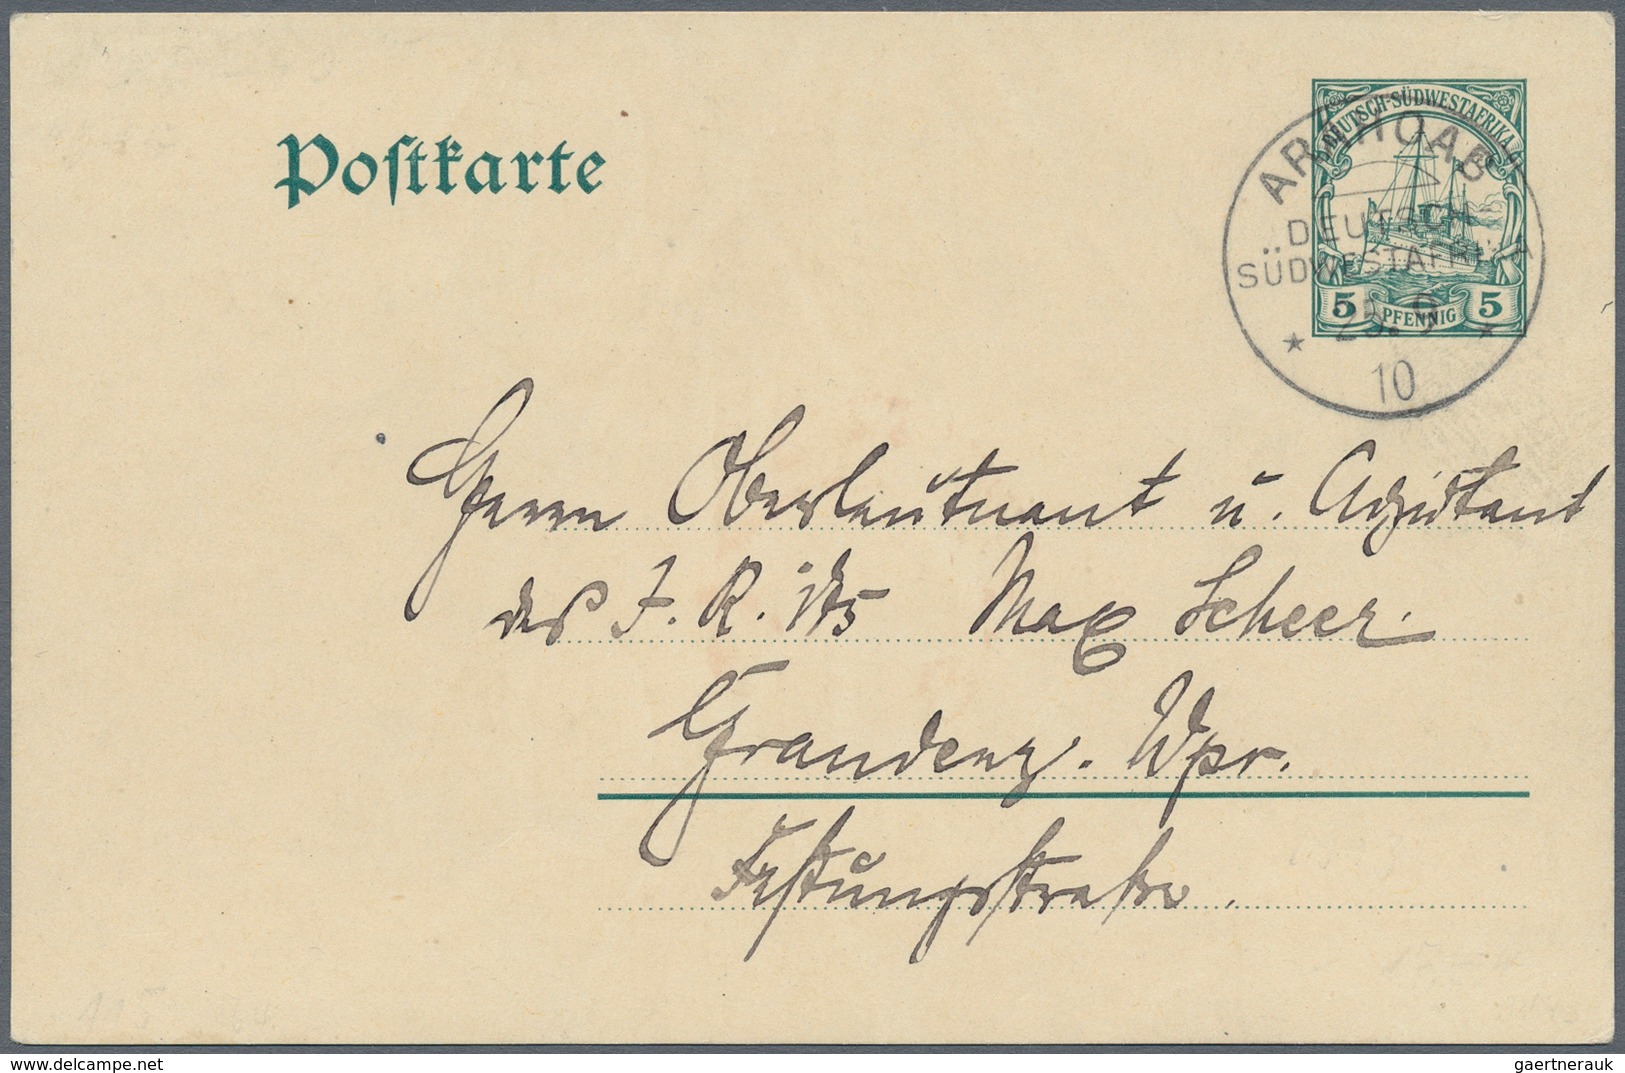 Postkarte
DEUTSCH-SÜDWESTAFRIKA
5 PFENNIG 5
ARAHOAB
DEUTSCH-
SÜDWESTAFRIKA
9
10
Herrn Oberleutnant u. Adjutant
des J. R. 175 Max Scheer.
Graudenz. Wpr.
Festungsstraße.
gaertnerauk